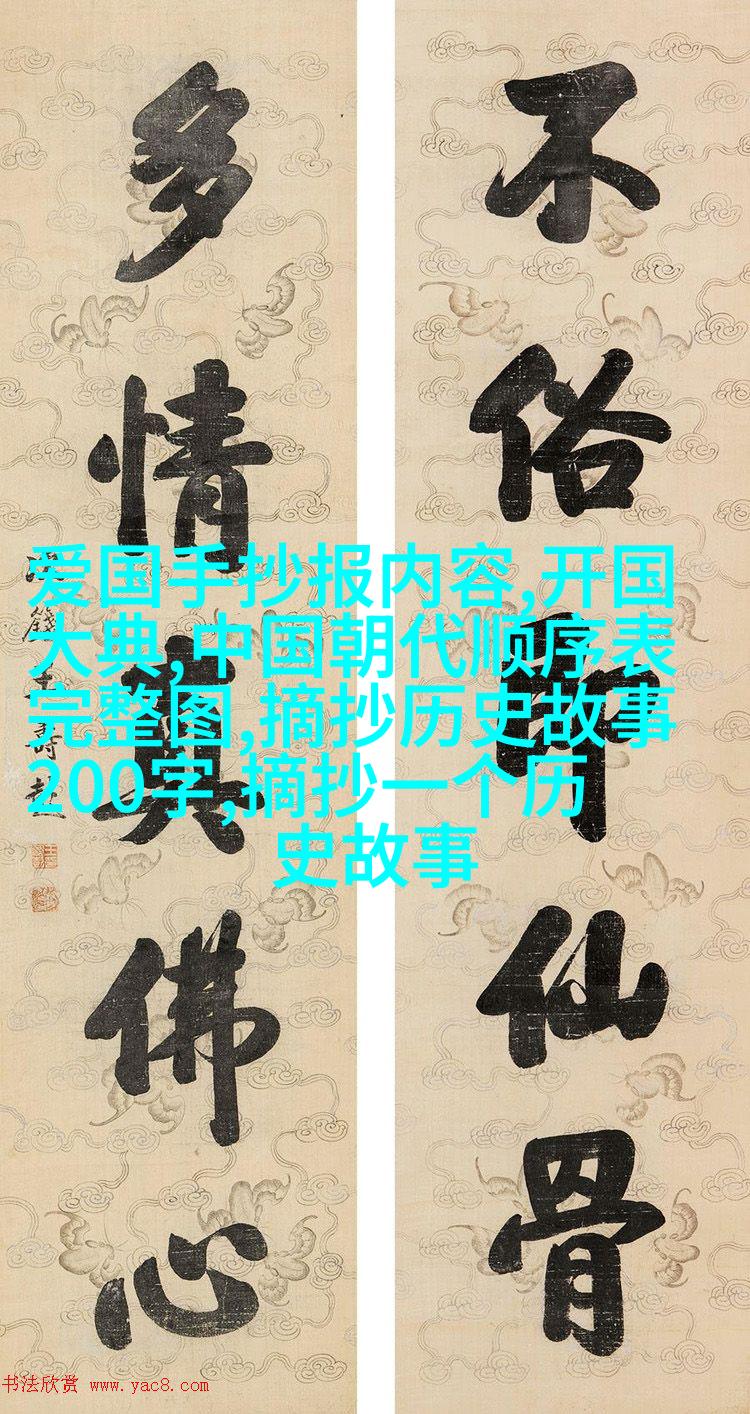 不俗即仙骨
多情真佛心
爱国手抄报内容,开国
大典,中国朝代顺序表
完整图,摘抄历史故事
200字,摘抄一个历
史故事
书法欣赏 www.yac8.com